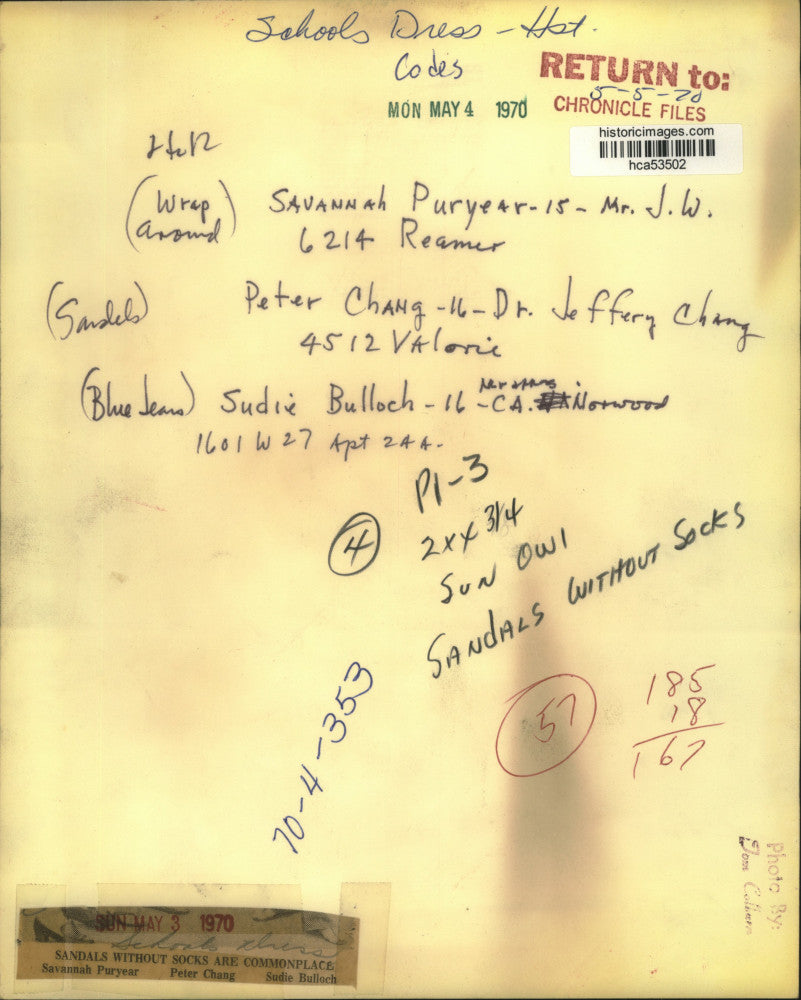 Schools Dress - Hst.
Codes
RETURN to:
5-5-70
MON MAY 4 1970
CHRONICLE FILES
historicimages.com
hca53502
(Wrap around) SAVANNAh Puryear-15- Mr. J.W.
6214 Reamer
(Sandels) Peter Chang -16- Dr. Jeffery Chang
4512 VAlerie
(Blue Jeans) Sudie Bulloch - 16 - CA. Norwood
1601 W 27 Apt 244.
P1-3
4
2x4 3/4
SUN OWI
SANdALS WITHOUT SOCKS
70-4-353
57
185
18
167
Photo By:
Tom Colburn
SUN MAY 3 1970
Schools dress
SANDALS WITHOUT SOCKS ARE COMMONPLACE
Savannah Puryear Peter Chang Sudie Bulloch